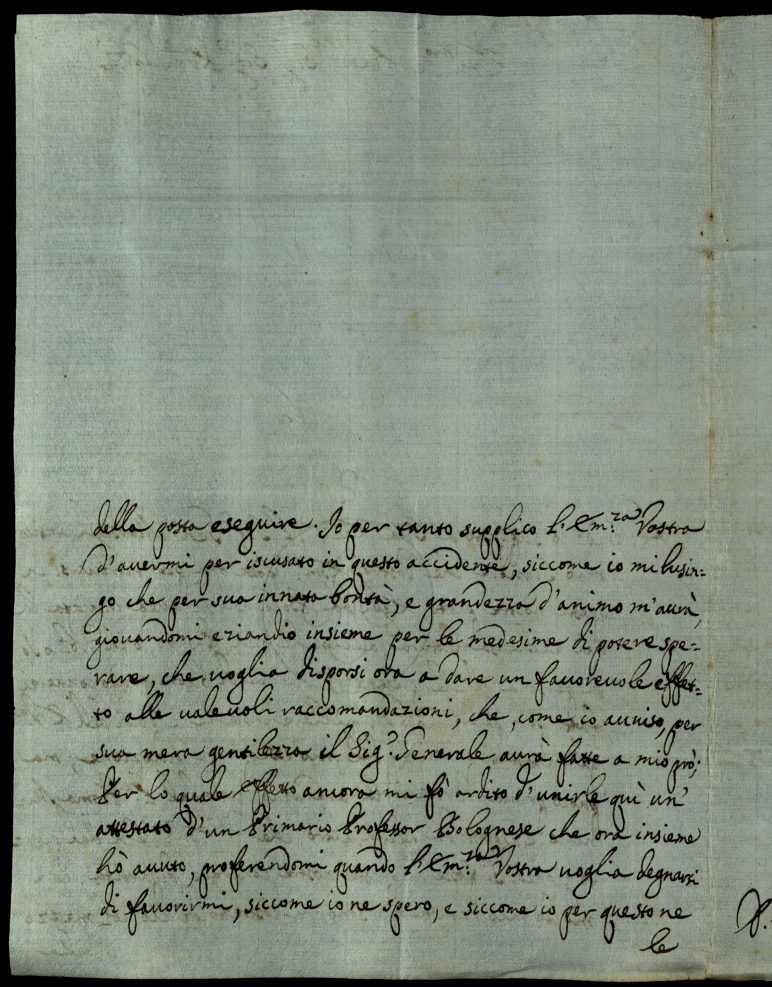 della posta eseguire. Io per tanto supplico l'Em.za Vostra
d'avermi per iscusato in questo accidente, siccome io mi lusin=
go che per sua innata bontà, e grandezza d'animo m'aurà,
giovandomi eziandio insieme per le medesime di potere spe=
rare, che voglia disporsi ora a dare un favorevole effet=
to alle valevoli raccomandazioni, che, come io avviso, per
sua mera gentilezza il Sig.r Generale aurà fatte a mio prò;
Per lo quale effetto ancora mi fò ardito d'unirle quì un'
attestato d'un Primario Professor Bolognese che ora insieme
hò avuto, proferendomi quando l'Em.za Vostra voglia degnarsi
di favorirmi, siccome io ne spero, e siccome io per questo ne
le